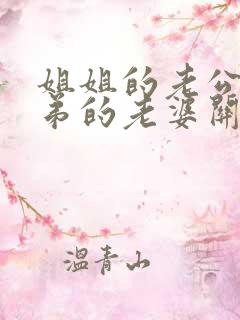 姐姐的老公
弟的老婆関
温青山